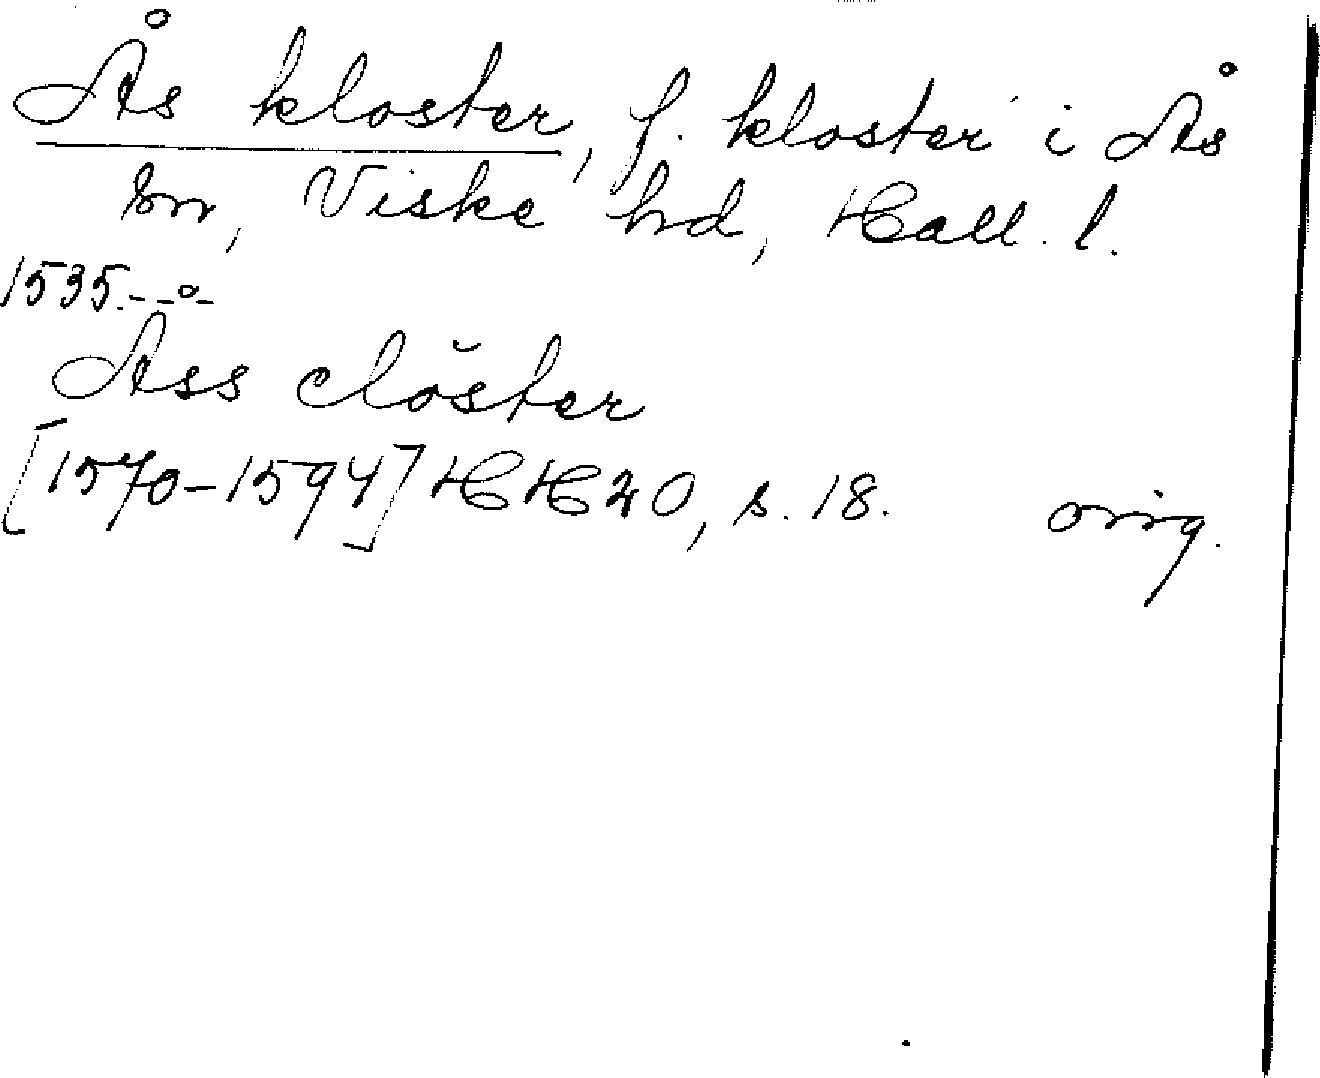 Ås kloster, f. kloster i Ås
sn, Viske hd, Hall. l.
1535.---
Åss clŏster
[1570-1594] HH 20, s. 18. orig.